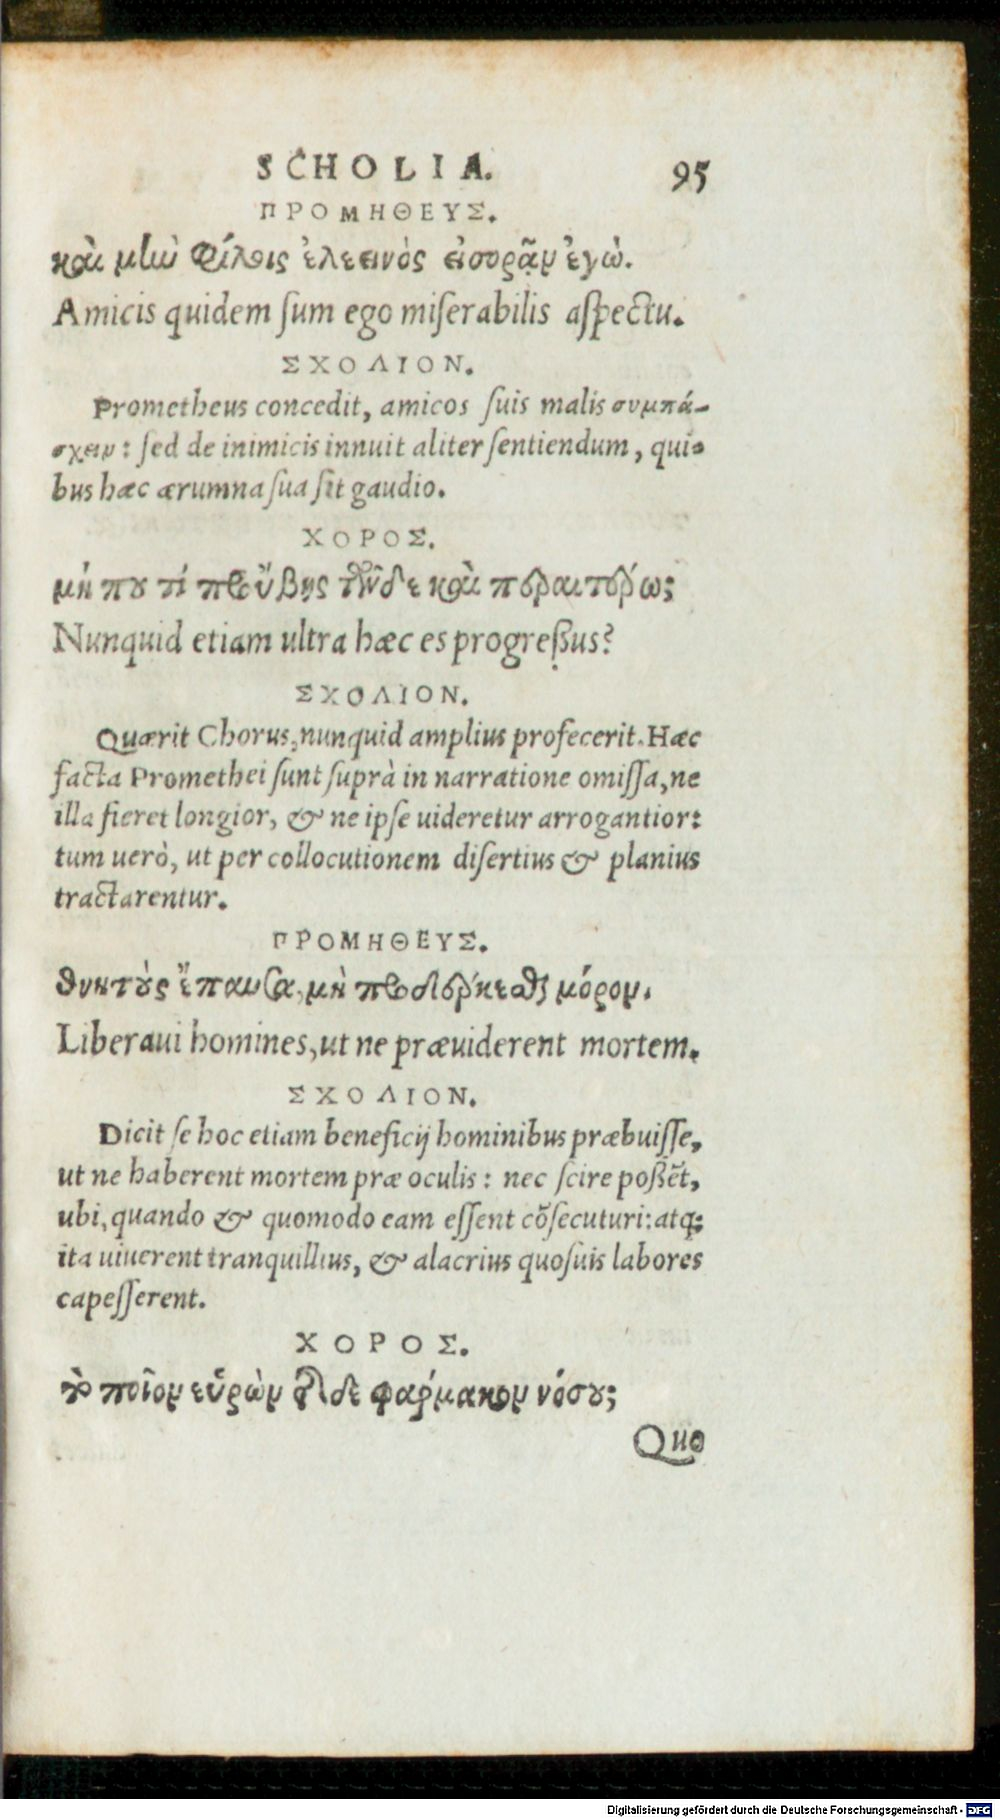 SCHOLIA. 95
ΠΡΟΜΗΘΕΥΣ.
καὶ μὴν φίλοις ἐλεεινὸς εἰσορᾷν ἐγώ.
Amicis quidem ſum ego miſerabilis aſpectu.
ΣΧΟΛΙΟΝ.
Prometheus concedit, amicos ſuis malis συμπά-
σχειν: ſed de inimicis innuit aliter ſentiendum, qui-
bus hæc ærumna ſua ſit gaudio.
ΧΟΡΟΣ.
μή που τὶ προὔβης τῶνδε καὶ περαιτέρω;
Nunquid etiam ultra hæc es progreßus?
ΣΧΟΛΙΟΝ.
Quærit Chorus, nunquid amplius profecerit. Hæc
facta Promethei ſunt ſuprà in narratione omiſſa, ne
illa fieret longior, & ne ipſe uideretur arrogantior:
tum uerò, ut per collocutionem diſertius & planius
tractarentur.
ΠΡΟΜΗΘΕΥΣ.
θνητοὺς ἔπαυσα, μὴ προδέρκεσθαι μόρον.
Liberaui homines, ut ne præuiderent mortem.
ΣΧΟΛΙΟΝ.
Dicit ſe hoc etiam beneficij hominibus præbuiſſe,
ut ne haberent mortem præ oculis: nec ſcire poßēt,
ubi, quando & quomodo eam eſſent cōſecuturi: atq;
ita uiuerent tranquillius, & alacrius quoſuis labores
capeſſerent.
ΧΟΡΟΣ.
τὸ ποῖον εὑρὼν τῆσδε φαρμακον νόσου;
Quo
Digitalisierung gefördert durch die Deutsche Forschungsgemeinschaft - DFG